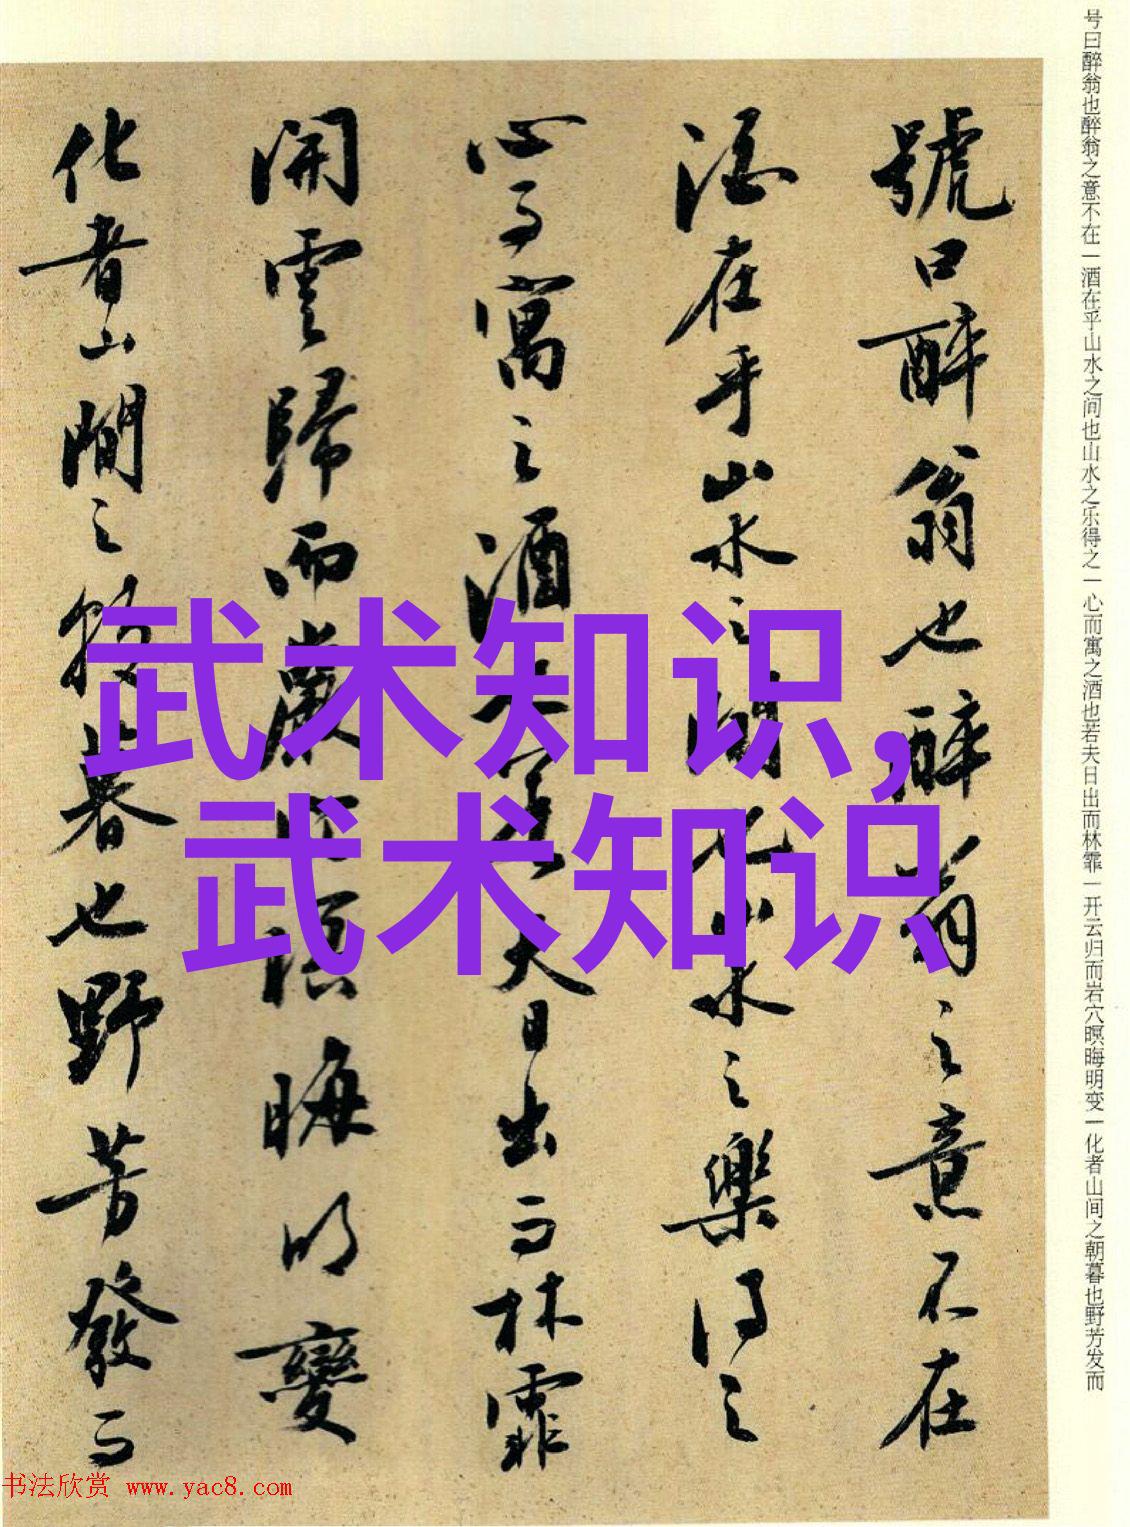 号曰醉翁也醉翁之意不在一酒在乎山水之间也山水之乐得之一心而寓之酒也若夫日出而林霏一开云归而岩穴暝晦明变一化者山间之朝暮也野芳发而
號曰醉翁也醉翁之意不在
酒在乎山水之間也山水之樂得之
心而寓之酒也若夫日出而林霏
開雲歸而巖穴暝晦明變
化者山間之朝暮也野芳發而
武术知识,
武术知识
书法欣赏 www.yac8.com